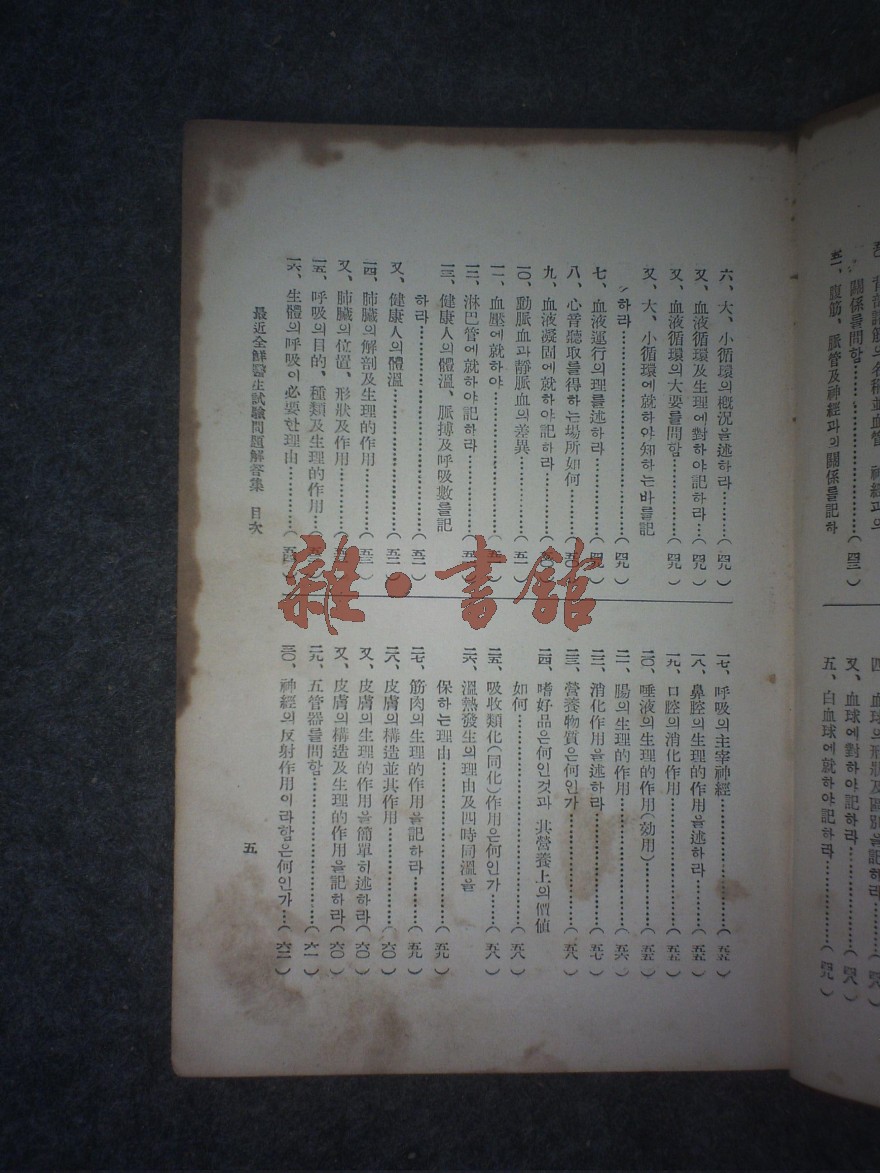 關係를問함……………………(四三)
五一、腹筋、脈管及神經과의關係를記하
又、血球에對하야記하라…………(四八)
五、白血球에就하야記하라…………(四九)
六、大、小循環의槪況을述하라………(四九)
又、血液循環及生理에對하야記하라…(四九)
又、血液循環의大要를問함…………(四九)
又、大、小循環에就하야知하는바를記
하라……………………………(四九)
七、血液運行의理를述하라…………(四九)
八、心音聽取를得하는場所如何……(五〇)
九、血液凝固에就하야記하라………(五〇)
一〇、動脈血과靜脈血의差異………(五一)
一一、血壓에就하야
一二、淋巴管에就하야記하라
一三、健康人의體溫、脈搏及呼吸數를記
하라……………………………(五二)
又、健康人의體溫……………………(五二)
一四、肺臟의解剖及生理的作用……(五三)
又、肺臟의位置、形狀及作用
一五、呼吸의目的、種類及生理的作用
一六、生體의呼吸이必要한理由
一七、呼吸의主宰神經………………(五五)
一八、鼻腔의生理的作用을述하라…(五五)
一九、口腔의消化作用………………(五五)
二〇、唾液의生理的作用(効用)……(五五)
二一、腸의生理的作用………………(五六)
二二、消化作用을述하라……………(五七)
二三、營養物質은何인가……………(五八)
二四、嗜好品은何인것과 其營養上의價値
如何……………………………(五八)
二五、吸收類化(同化)作用은何인가…(五八)
二六、溫熱發生의理由及四時同溫을
保하는理由……………………(五九)
二七、筋肉의生理的作用을記하라…(五九)
二八、皮膚의構造並其作用…………(六〇)
又、皮膚의生理的作用을簡單히述하라(六〇)
又、皮膚의構造及生理的作用을記하라(六〇)
二九、五管器를問함…………………(六一)
三〇、神經의反射作用이라함은何인가…(六二)
最近全鮮醫生試驗問題解答集 目次
五
雜·書館